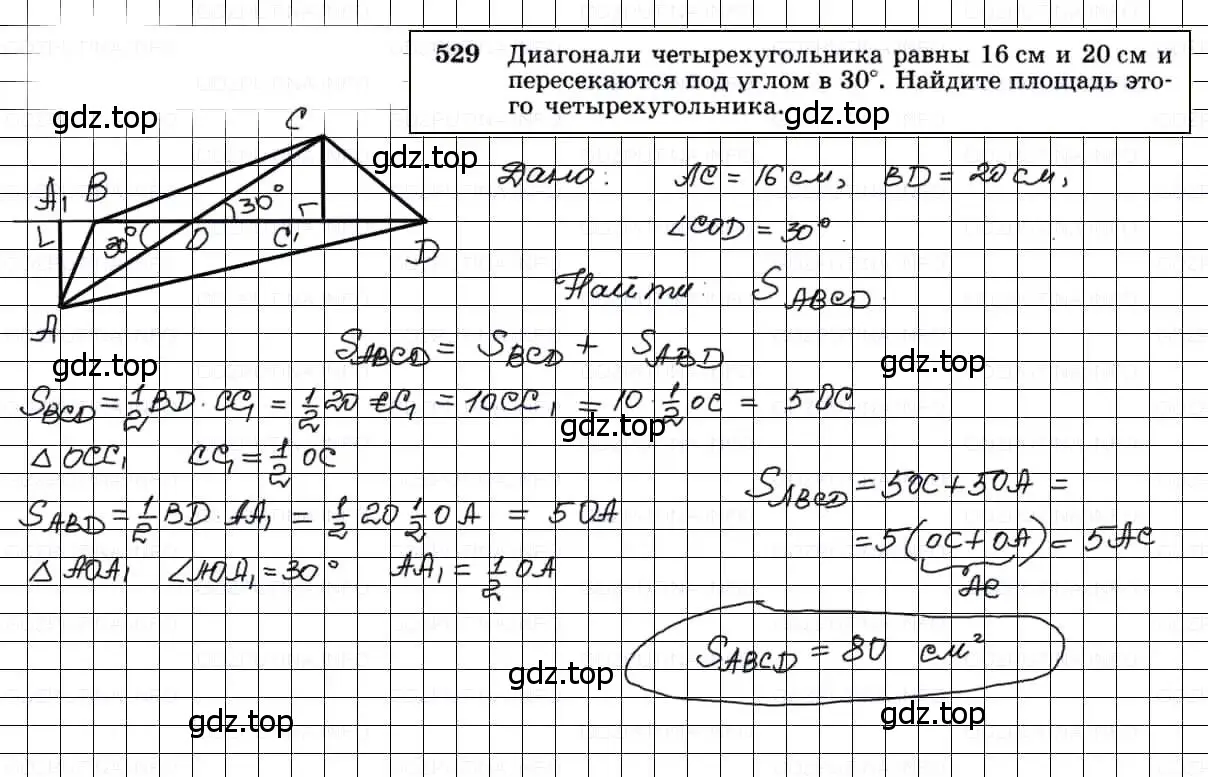 529 Диагонали четырехугольника равны 16 см и 20 см и
пересекаются под углом в 30°. Найдите площадь это-
го четырехугольника.
gdz.top
gdz.top
gdz.top
C
A₁ B
30°
30°
O
C₁
D
A
Дано: AC = 16 см, BD = 20 см,
∠COD = 30°
Найти: S_ABCD.
S_ABCD = S_BCD + S_ABD
gdz.top
gdz.top
S_BCD = 1/2 BD · CC₁ = 1/2 20 CC₁ = 10CC₁ = 10 · 1/2 OC = 5OC
gdz.top
△ OCC₁ CC₁ = 1/2 OC
S_ABD = 1/2 BD · AA₁ = 1/2 20 1/2 OA = 5OA
△ AOA₁ ∠AOA₁ = 30° AA₁ = 1/2 OA
S_ABCD = 5OC + 5OA =
= 5(OC + OA) = 5AC
AC
S_ABCD = 80 см²
gdz.top
gdz.top
gdz.top